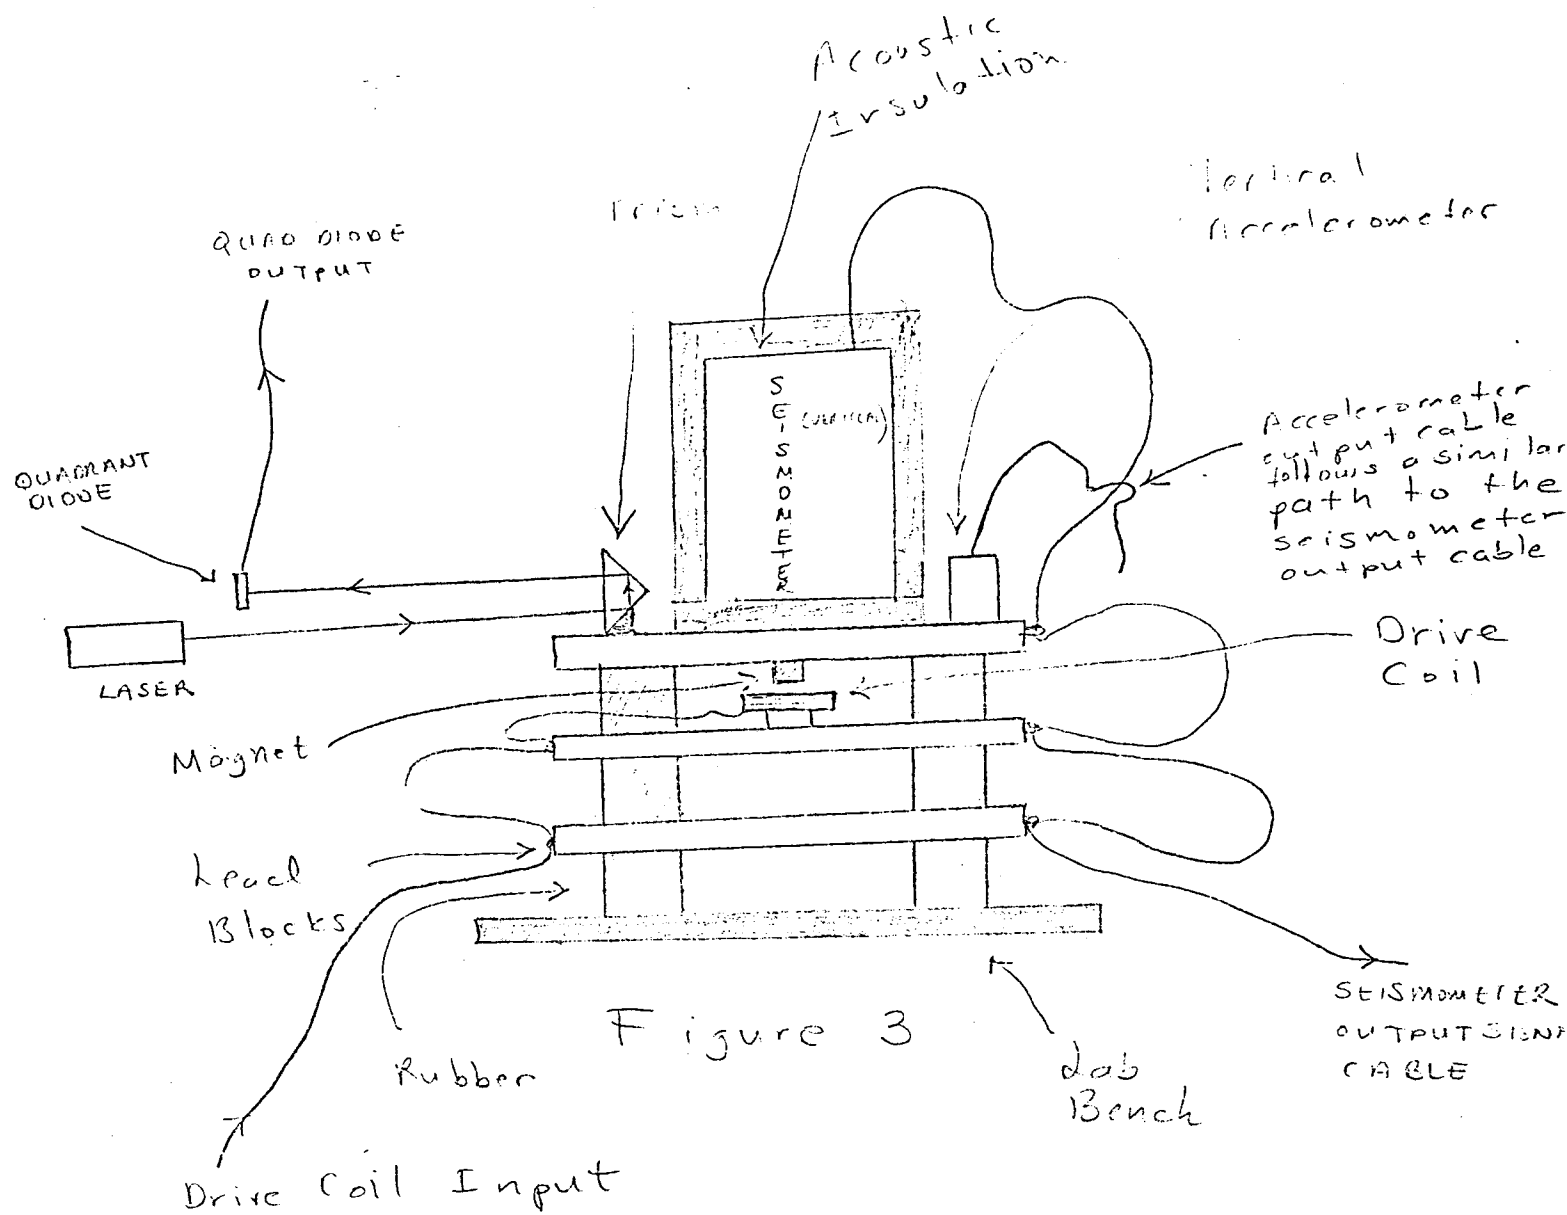 Acoustic
Insulation
Prism
Vertical
Accelerometer
QUAD DIODE
OUTPUT
SEISMOMETER
(VERTICAL)
Accelerometer
output cable
follows a similar
path to the
seismometer
output cable
QUADRANT
DIODE
LASER
Drive
Coil
Magnet
Lead
Blocks
Rubber
Figure 3
Lab
Bench
SEISMOMETER
OUTPUT
CABLE
Drive Coil Input